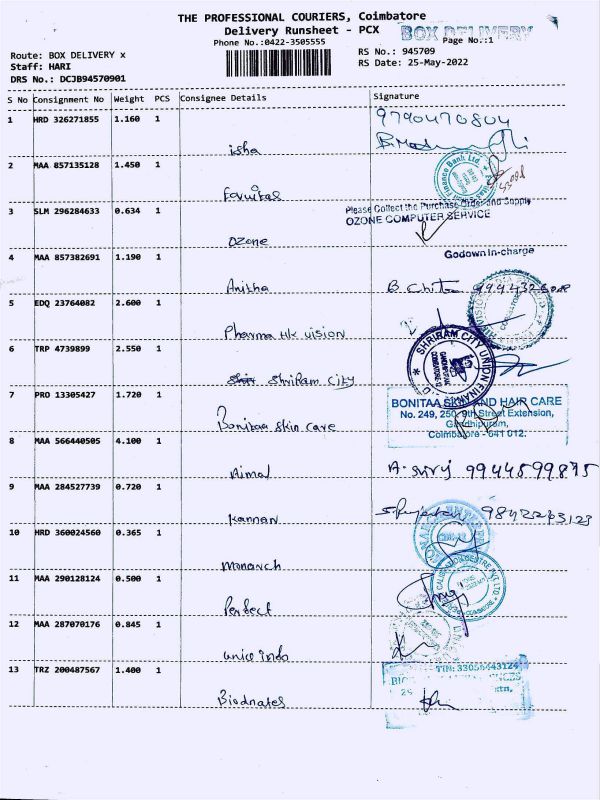 THE PROFESSIONAL COURIERS, Coimbatore
Delivery Runsheet - PCX
BOX DELIVERY
Phone No.:0422-3505555
Page No.:1
Route: BOX DELIVERY x
RS No.: 945709
Staff: HARI
RS Date: 25-May-2022
DRS No.: DCJB94570901
S No Consignment No Weight PCS Consignee Details Signature
1 HRD 326271855 1.160 1
9790470804
isha
2 MAA 857135128 1.450 1
Finance Bank Ltd.
3 SLM 296284633 0.634 1
Please Collect the Purchase Order and Supply
OZONE COMPUTER SERVICE
Ozone
4 MAA 857382691 1.190 1
Godown In-charge
Anitha
B. Chitra
5 EDQ 23764082 2.600 1
Pharma Hk vision
6 TRP 4739899 2.550 1
SHRIRAM CITY UNION FINANCE
Shriram City
7 PRO 13305427 1.720 1
BONITAA SKIN AND HAIR CARE
No. 249, 250, 9th Street Extension,
Gandhipuram,
Coimbatore - 641 012.
Bonitaa Skin care
8 MAA 566440505 4.100 1
Nimal
9944599875
9 MAA 284527739 0.720 1
Kannan
10 HRD 360024560 0.365 1
Monarch
11 MAA 290128124 0.500 1
Perfect
12 MAA 287070176 0.845 1
unico indo
13 TRZ 200487567 1.400 1
TIN: 33056443124
Biodnates